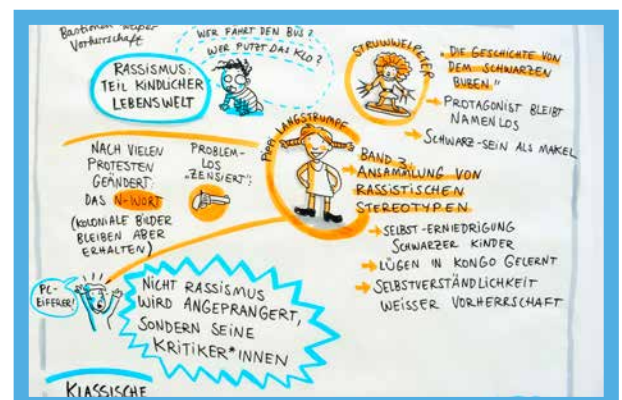 Bastionen weißer
Vorherrschaft
WER FÄHRT DEN BUS?
WER PUTZT DAS KLO?
RASSISMUS:
TEIL KINDLICHER
LEBENSWELT
STRUWWELPETER
„DIE GESCHICHTE VON
DEM SCHWARZEN
BUBEN."
→ PROTAGONIST BLEIBT
NAMENLOS
→ SCHWARZ-SEIN ALS MAKEL
PIPPI LANGSTRUMPF
NACH VIELEN
PROTESTEN
GEÄNDERT:
DAS N-WORT
(KOLONIALE BILDER
BLEIBEN ABER
ERHALTEN)
PROBLEM-
LOS
„ZENSIERT":
→ BAND 3:
ANSAMMLUNG VON
RASSISTISCHEN
STEREOTYPEN
→ SELBST-ERNIEDRIGUNG
SCHWARZER KINDER
→ LÜGEN IN KONGO GELERNT
→ SELBSTVERSTÄNDLICHKEIT
WEISSER VORHERRSCHAFT
PC-
EIFERER!
NICHT RASSISMUS
WIRD ANGEPRANGERT,
SONDERN SEINE
KRITIKER*INNEN
KLASSISCHE